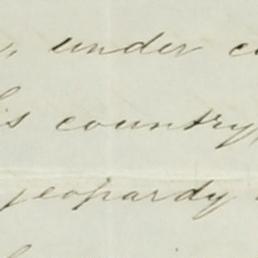 , under
s country,
jeopardy